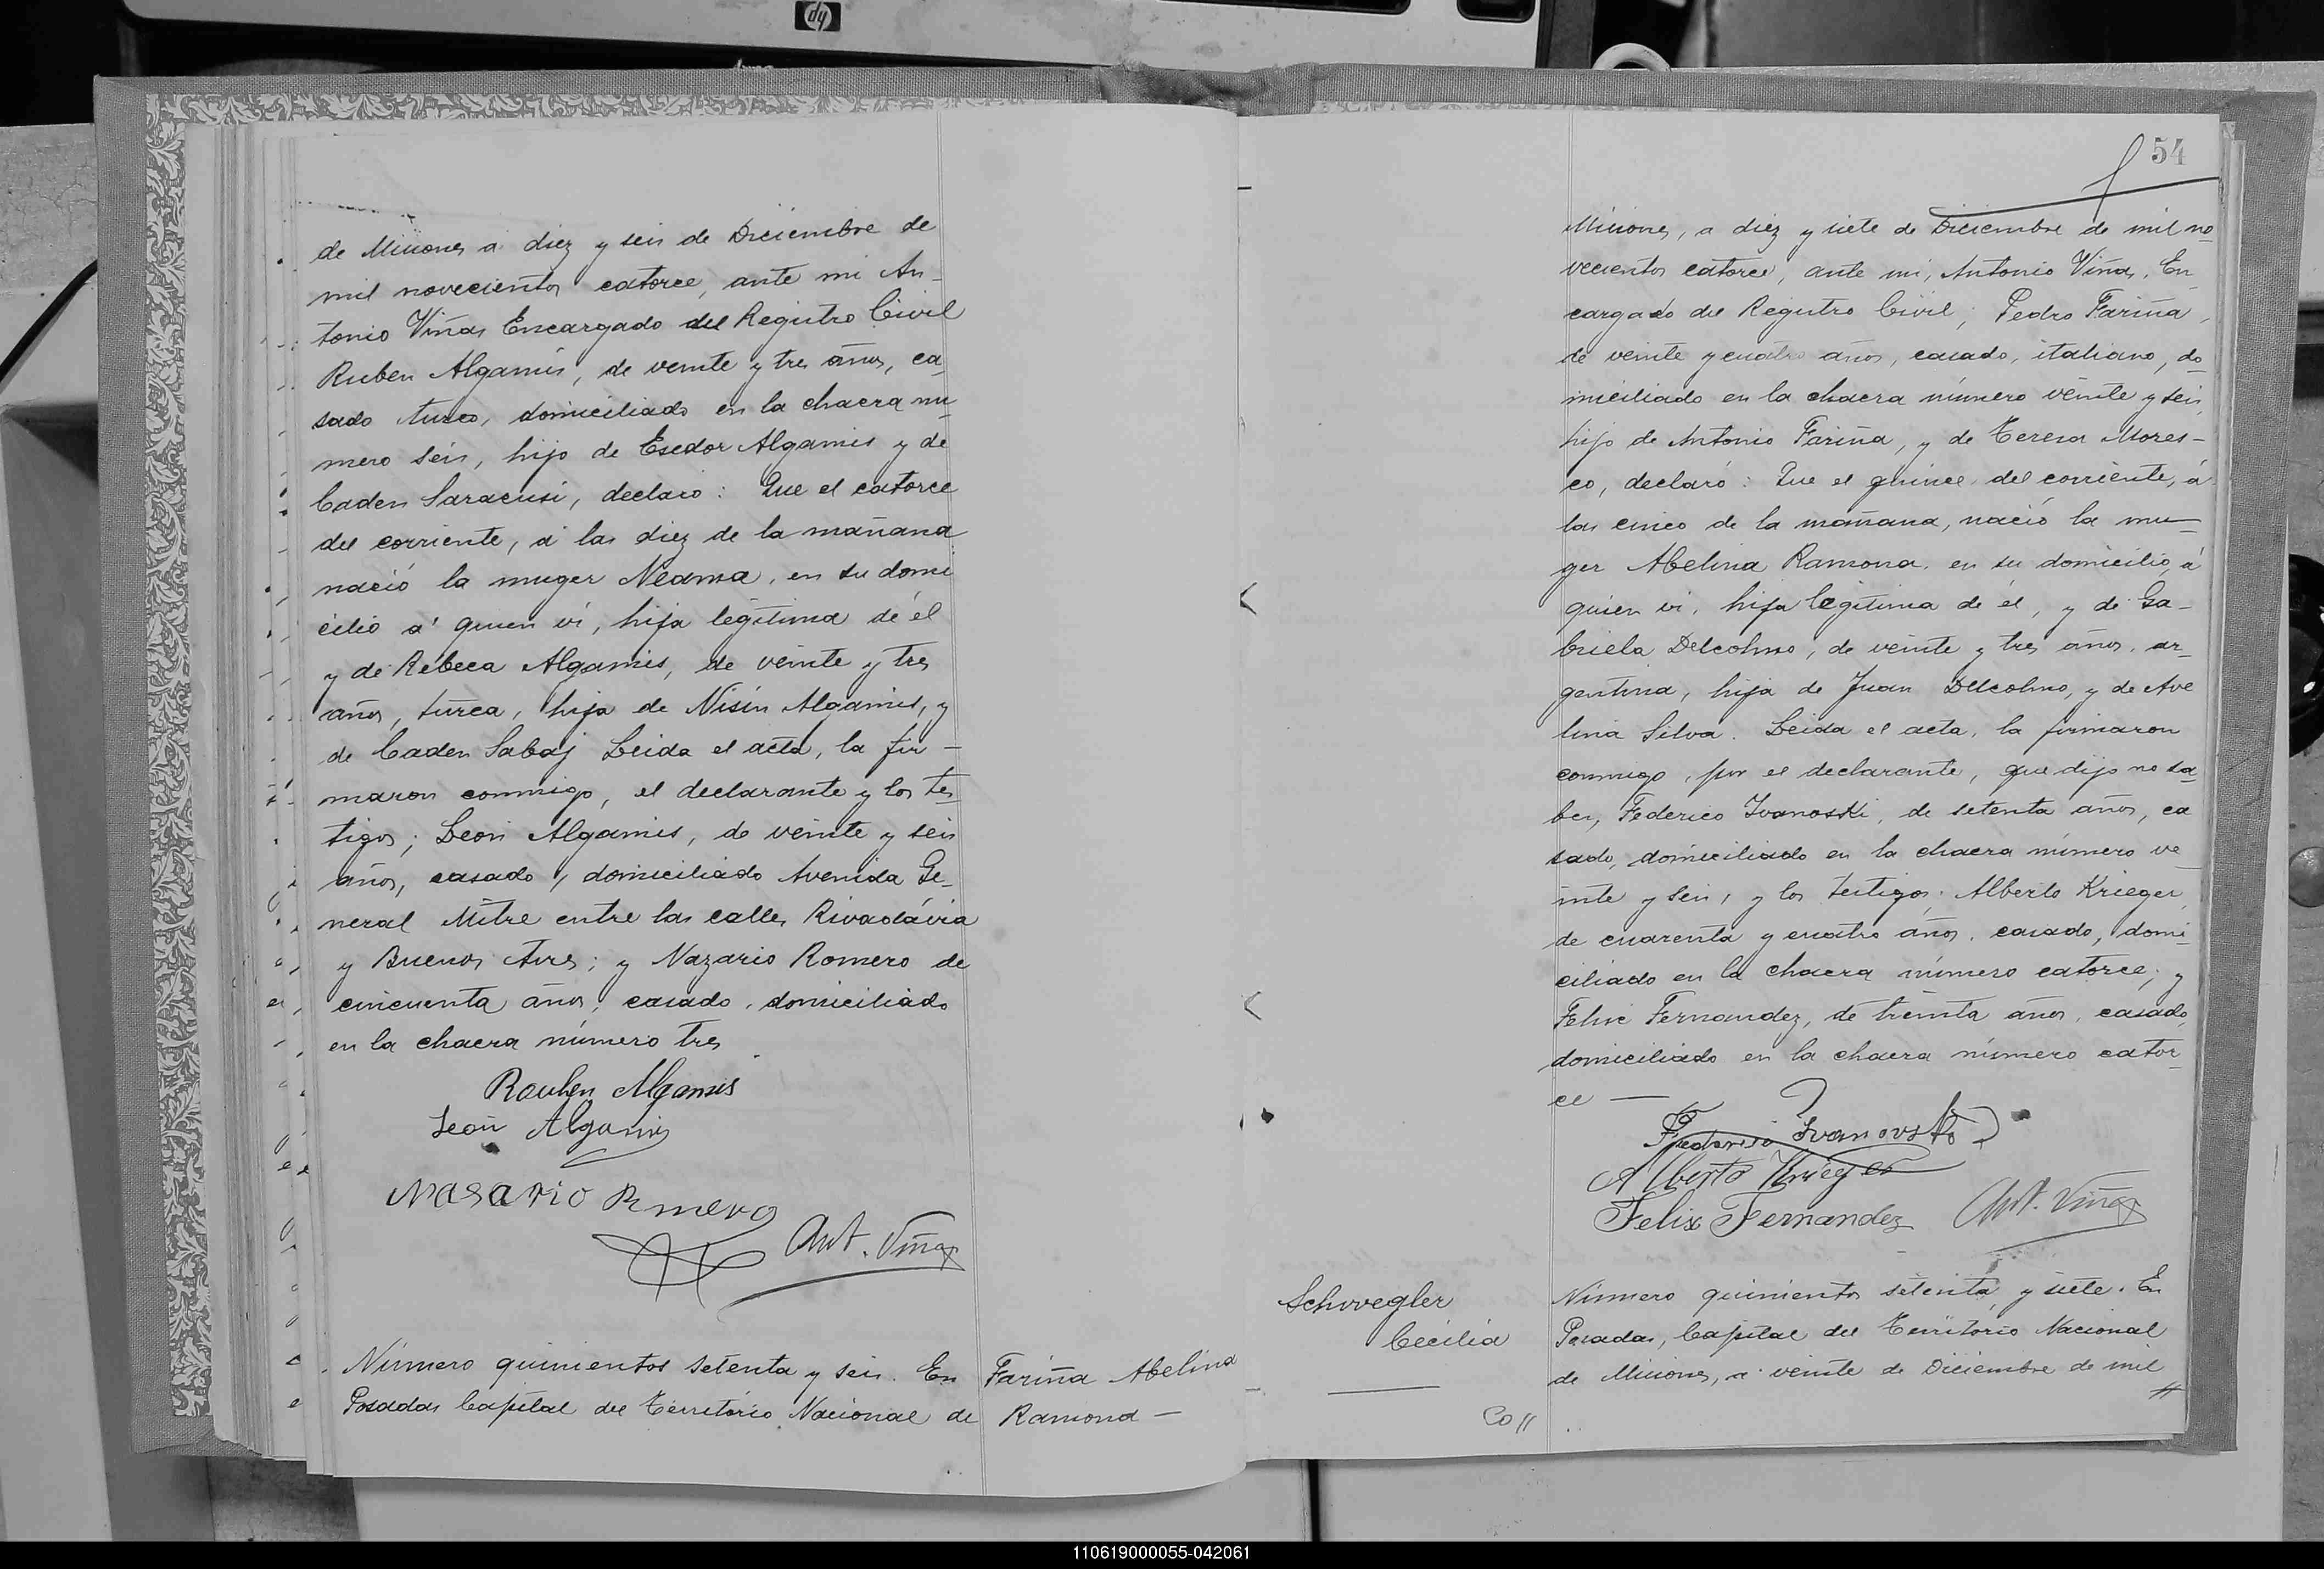 hp
de Misiones a diez y seis de Diciembre de
mil novecientos catorce, ante mi An-
tonio Viñas Encargado del Registro Civil
Ruben Algamis, de veinte y tres años, ca-
sado turco, domiciliado en la chacra nu-
mero séis, hijo de Esedor Algamis y de
Caden Saracusi, declaró: Que el catorce
del corriente, á las diez de la mañana
nació la muger Neama, en su domi
cilio á quien ví, hija legítima de él
y de Rebeca Algamis, de veinte y tres
años, turca, hija de Nisin Algamis, y
de Caden Sabaj Leida el acta, la fir-
maron conmigo, el declarante y los tes-
tigos; Leon Algamis, de veinte y seis
años, casado, domiciliado Avenida Ge-
neral Mitre entre las calles Rivadávia
y Buenos Aires; y Nazario Romero de
cincuenta años, casado, domiciliado
en la chacra número tres
Rouben Algamis
León Algamis
Nasario Rmero
Ant. Viñas
Número quinientos setenta y seis. En
Posadas Capital del Territorio Nacional de
Fariña Abelina
Ramona —
54
Misiones, a diez y siete de Diciembre de mil no-
vecientos catorce, ante mi, Antonio Viñas, En
cargado del Registro Civil; Pedro Fariña,
de veinte y cuatro años, casado, italiano, do-
miciliado en la chacra número veinte y seis,
hijo de Antonio Fariña, y de Teresa Mores-
co, declaró: Que el quince del corriente, á
las cinco de la mañana, nació la mu-
ger Abelina Ramona, en su domicilio, á
quien ví, hija legítima de él, y de Ga-
briela Delcolmo, de veinte y tres años, ar-
gentina, hija de Juan Delcolmo, y de Ave
lina Silva. Leida el acta, la firmaron
conmigo, por el declarante, que dijo no sa-
ber, Federico Ivanoski, de setenta años, ca
sado, domiciliado en la chacra número ve
inte y seis, y los testigos; Alberto Krieger,
de cuarenta y cuatro años, casado, domi-
ciliado en la chacra número catorce; y
Felix Fernandez, de treinta años, casado,
domiciliado en la chacra número cator-
ce —
Federico Ivanovski
Alberto Krieger
Felix Fernandez
Ant. Viñas
Schwegler
Cecilia
Número quinientos setenta y siete. En
Posadas, Capital del Territorio Nacional
de Misiones, a veinte de Diciembre de mil
//
110619000055-042061